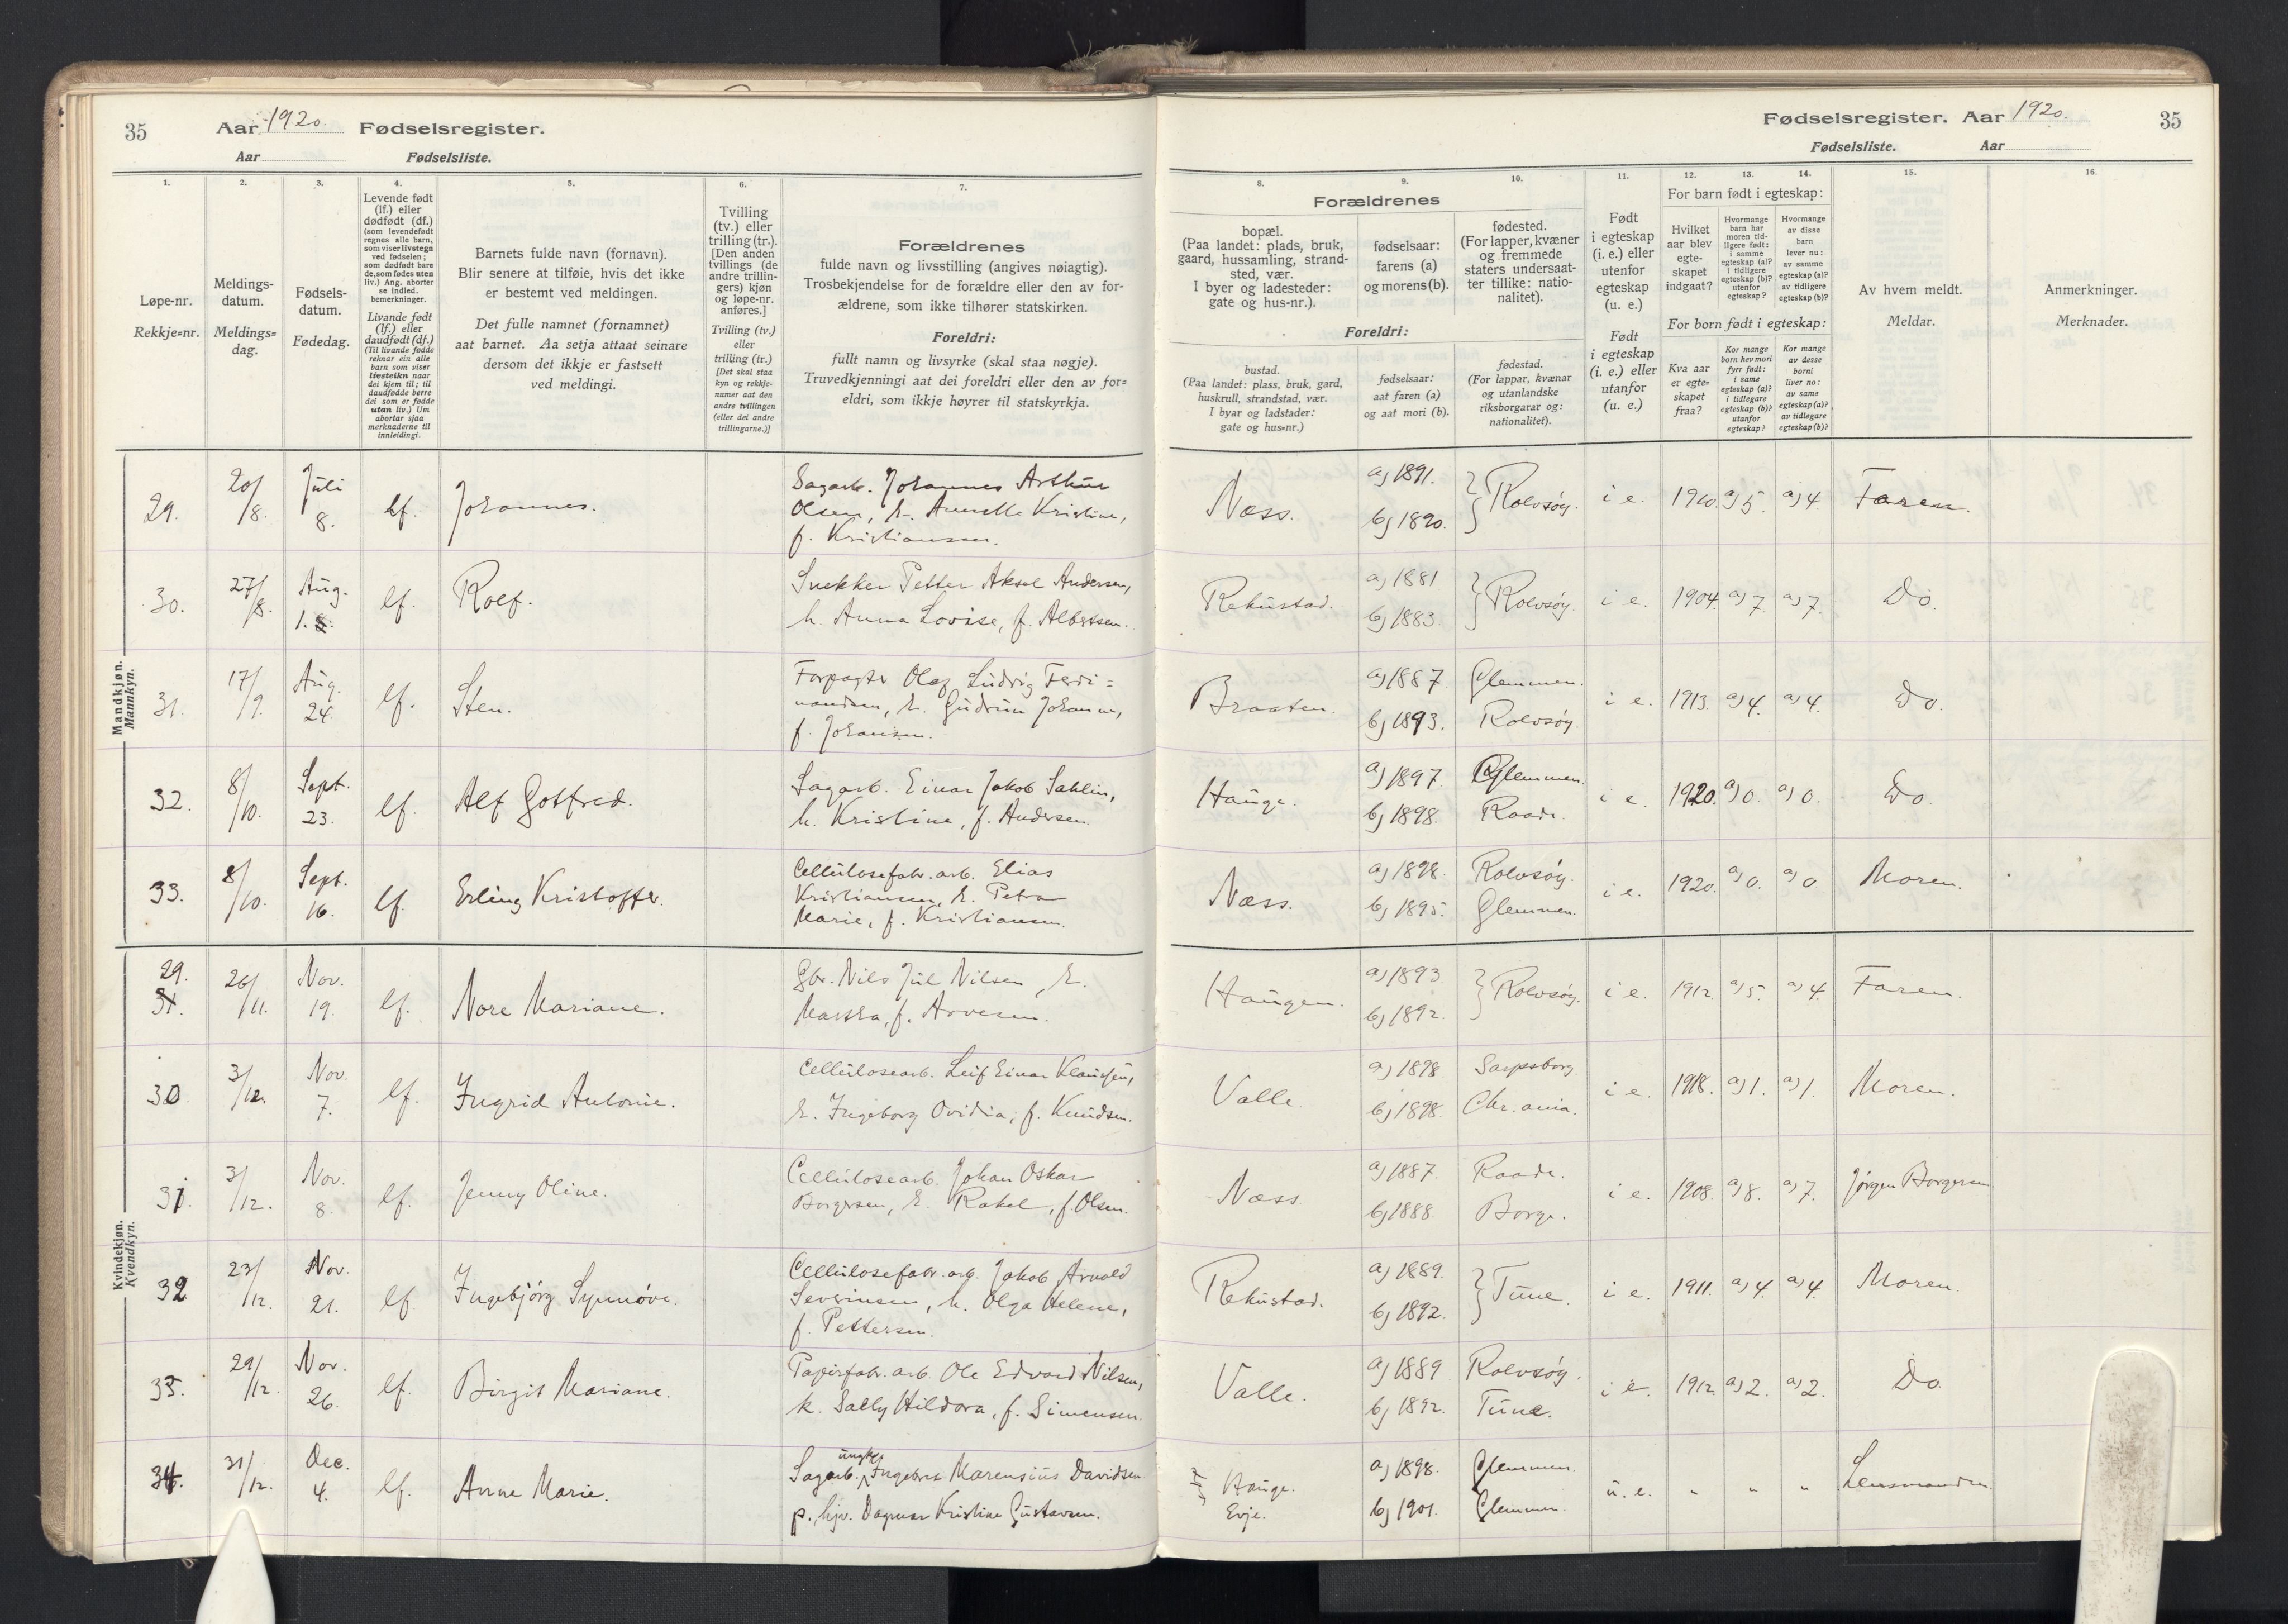 35
Aar 1920. Fødselsregister.
Aar Fødselsliste.
1.
Løpe-nr.
Rekkje=nr.
2.
Meldings-
datum.
Meldings=
dag.
3.
Fødsels-
datum.
Fødedag.
4.
Levende født
(lf.) eller
dødfødt (df.)
(som levendefødt
regnes alle barn,
som viser livstegn
ved fødselen;
som dødfødt bare
de, som fødes uten
liv.) Ang. aborter
se indled.
bemerkninger.
Livande født
(lf.) eller
daudfødt (df.)
(Til livande fødde
reknar ein alle
barn som viser
livsteikn naar
dei kjem til; til
daudfødde berre
dei som er fødde
utan liv.) Um
abortar sjaa
merknaderne til
innleidingi.
5.
Barnets fulde navn (fornavn).
Blir senere at tilføie, hvis det ikke
er bestemt ved meldingen.
Det fulle namnet (fornamnet)
aat barnet. Aa setja attaat seinare
dersom det ikkje er fastsett
ved meldingi.
6.
Tvilling
(tv.) eller
trilling (tr.).
[Den anden
tvillings (de
andre trillin-
gers) kjøn
og løpe-nr.
anføres.]
Tvilling (tv.)
eller
trilling (tr.)
[Det skal staa
kyn og rekkje-
numer aat den
andre tvillingen
(eller dei andre
trillingarne.)]
7.
Forældrenes
fulde navn og livsstilling (angives nøiagtig).
Trosbekjendelse for de forældre eller den av for-
ældrene, som ikke tilhører statskirken.
Foreldri:
fullt namn og livsyrke (skal staa nøgje).
Truvedkjenningi aat dei foreldri eller den av for=
eldri, som ikkje høyrer til statskyrkja.
Fødselsregister. Aar 1920. 35
Fødselsliste. Aar
8.
Forældrenes
bopæl.
(Paa landet: plads, bruk,
gaard, hussamling, strand-
sted, vær.
I byer og ladesteder:
gate og hus-nr.).
Foreldri:
bustad.
(Paa landet: plass, bruk, gard,
huskrull, strandstad, vær.
I byar og ladstader:
gate og hus=nr.)
9.
fødselsaar:
farens (a)
og morens (b).
fødselsaar:
aat faren (a)
og aat mori (b).
10.
fødested.
(For lapper, kvæner
og fremmede
staters undersaat-
ter tillike: natio-
nalitet).
fødestad.
(For lappar, kvænar
og utanlandske
riksborgarar og:
nationalitet).
11.
Født
i egteskap
(i. e.) eller
utenfor
egteskap
(u. e.)
Født
i egteskap
(i. e.) eller
utanfor
(u. e.)
12. 13. 14.
For barn født i egteskap:
Hvilket
aar blev
egte-
skapet
indgaat?
Hvormange
barn har
moren tid-
ligere født:
i samme
egteskap (a)?
i tidligere
egteskap (b)?
utenfor
egteskap?
Hvormange
av disse
barn
lever nu:
av samme
egteskap (a)?
av tidligere
egteskap (b)?
For born født i egteskap:
Kva aar
er egte=
skapet
fraa?
Kor mange
born hev mori
fyrr født:
i same
egteskap (a)?
i tidlegare
egteskap (b)?
utanfor
egteskap?
Kor mange
av desse
borni
liver no:
av same
egteskap (a)?
av tidlegare
egteskap (b)?
15.
Av hvem meldt.
Meldar.
16.
Anmerkninger.
Merknader.
Mandkjøn.
Mannkyn.
29. 20/8. Juli 8. lf. Johannes. Sagarb. Johannes Arthur
Olsen, h. Annette Kristine,
f. Kristiansen.
Næss. a) 1891. b) 1890. Rolvsøy. i e. 1910. a) 5. a) 4. Faren.
30. 27/8. Aug. 18. lf. Rolf. Snekker Petter Aksel Andersen,
h. Anna Lovise, f. Albertsen.
Rekustad. a) 1881 b) 1883. Rolvsøy. i e. 1904. a) 7. a) 7. Do.
31. 17/9. Aug. 24. lf. Sten. Forpagter Olaf Ludvig Ferdi=
nandsen, h. Gudrun Johanne,
f. Johansen.
Braaten. a) 1887 b) 1893. Glemmen. Rolvsøy. i e. 1913. a) 4. a) 4. Do.
32. 8/10. Sept. 23. lf. Alf Gotfred. Sagarb. Einar Jakob Sahlin,
h. Kristine, f. Andersen.
Hauge. a) 1897. b) 1898. Glemmen. Raade. i e. 1920. a) 0. a) 0. Do.
33. 8/10. Sept. 16. lf. Erling Kristoffer. Cellulosefabr. arb. Elias
Kristiansen, h. Petra
Marie, f. Kristiansen.
Næss. a) 1898. b) 1895. Rolvsøy. Glemmen. i e. 1920. a) 0. a) 0 Moren.
Kvindekjøn.
Kvendkyn.
29. 31. 26/11. Nov. 19. lf. Nore Mariane. Gbr. Nils Jul Nilsen, h.
Martha, f. Arvesen.
Haugen. a) 1893 b) 1892. Rolvsøy. i e. 1912. a) 5. a) 4. Faren.
30 3/12. Nov. 7. lf. Ingrid Antonie. Cellulosearb. Leif Einar Klausen,
h. Ingeborg Ovidia, f. Knudsen.
Valle. a) 1898 b) 1898. Sarpsborg Chr.ania. i e. 1918. a) 1. a) 1. Moren.
31. 3/12. Nov. 8. lf. Jenny Oline. Cellulosearb. Johan Oskar
Borgersen, h. Rakel, f. Olsen.
Næss. a) 1887. b) 1888 Raade. Borge. i e. 1908. a) 8. a) 7. Jørgen Borgersen
32 23/12. Nov. 21. lf. Ingebjörg Synnöve. Cellulosefabr. arb. Jakob Arnold
Severinsen, h. Olga Helene,
f. Pettersen.
Rekustad. a) 1889. b) 1892. Tune. i e. 1911. a) 4. a) 4. Moren.
33. 29/12. Nov. 26. lf. Birgit Mariane. Papirfabr. arb. Ole Edvard Nilsen,
h. Sally Hildora, f. Simensen.
Valle. a) 1889 b) 1892. Rolvsøy. Tune. i e. 1912. a) 2. a) 2. Do.
34. 31/12. Dec. 4. lf. Anne Marie. Sagarb. ungk. Ingebret Marensius Davidsen
p. hjv. Dagmar Kristine Gustavsen.
Hauge. Evje. a) 1898. b) 1901. Glemmen. Glemmen. u. e. " " " Lensmanden